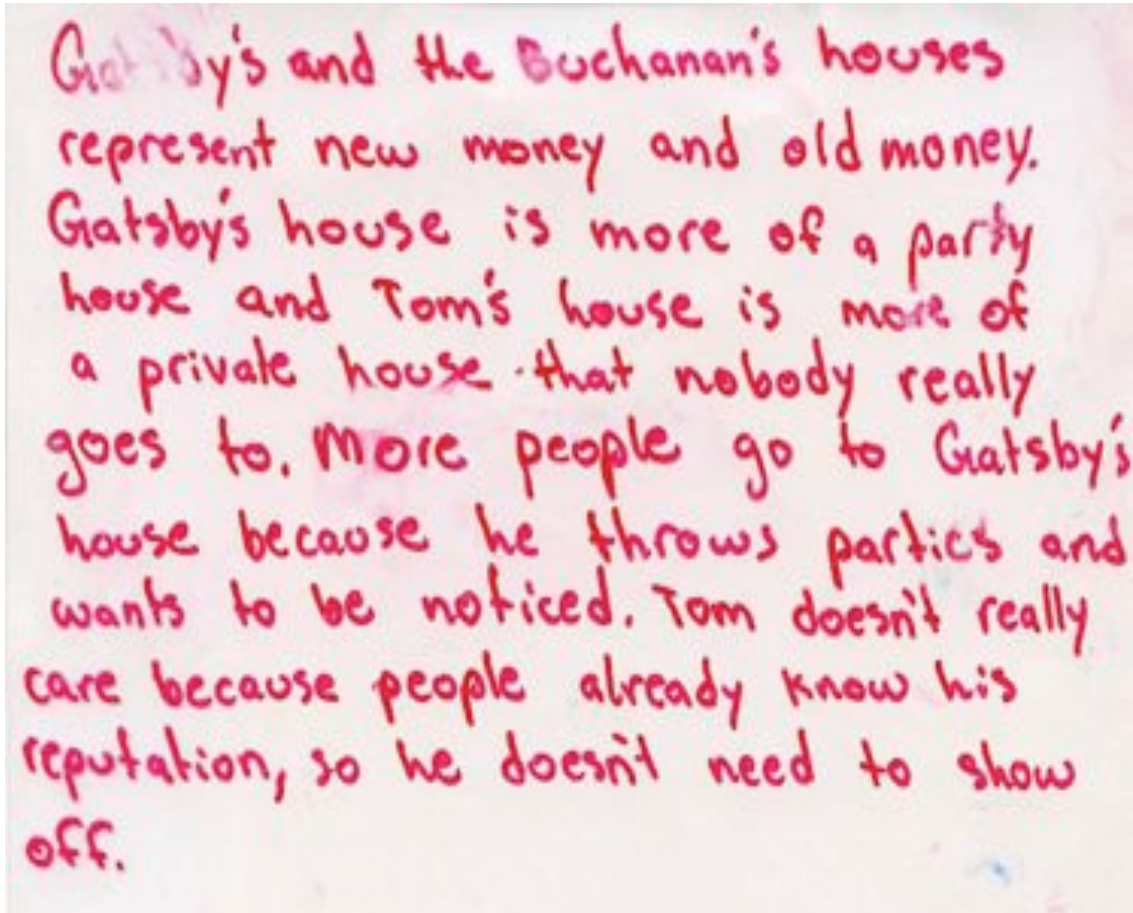 Gatsby's and the Buchanan's houses
represent new money and old money.
Gatsby's house is more of a party
house and Tom's house is more of
a private house that nobody really
goes to. More people go to Gatsby's
house because he throws parties and
wants to be noticed. Tom doesn't really
care because people already know his
reputation, so he doesn't need to show
off.